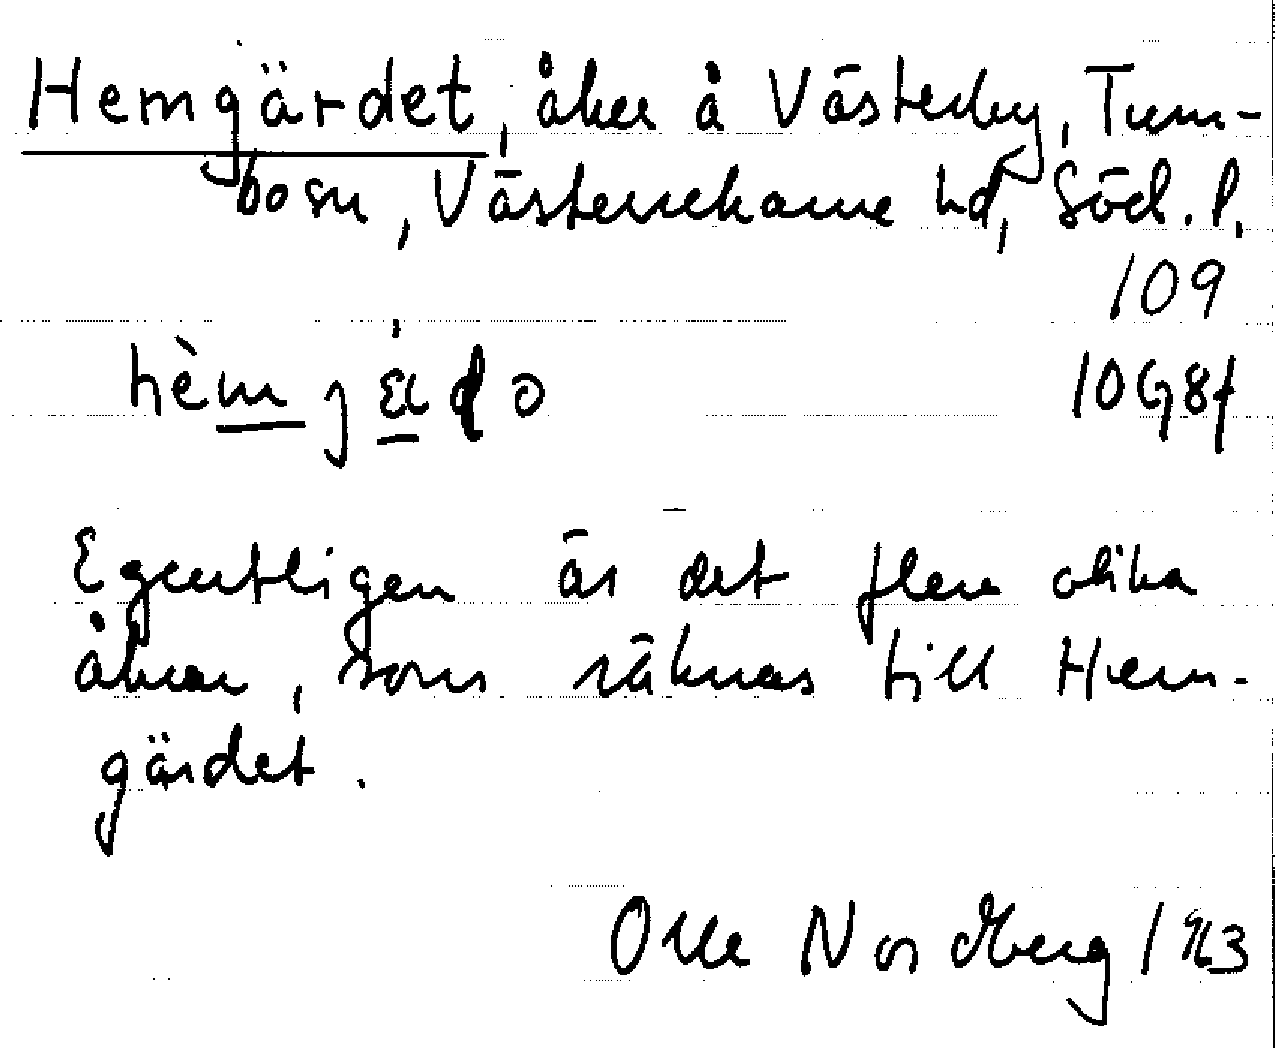 Hemgärdet, åker å Västerby, Tum-
bosn, Västerrekarne hd, Söd. l.
109
10G8f
Egentligen är det flera olika
åkrar, som räknas till Hem-
gärdet.
Olle Nordberg